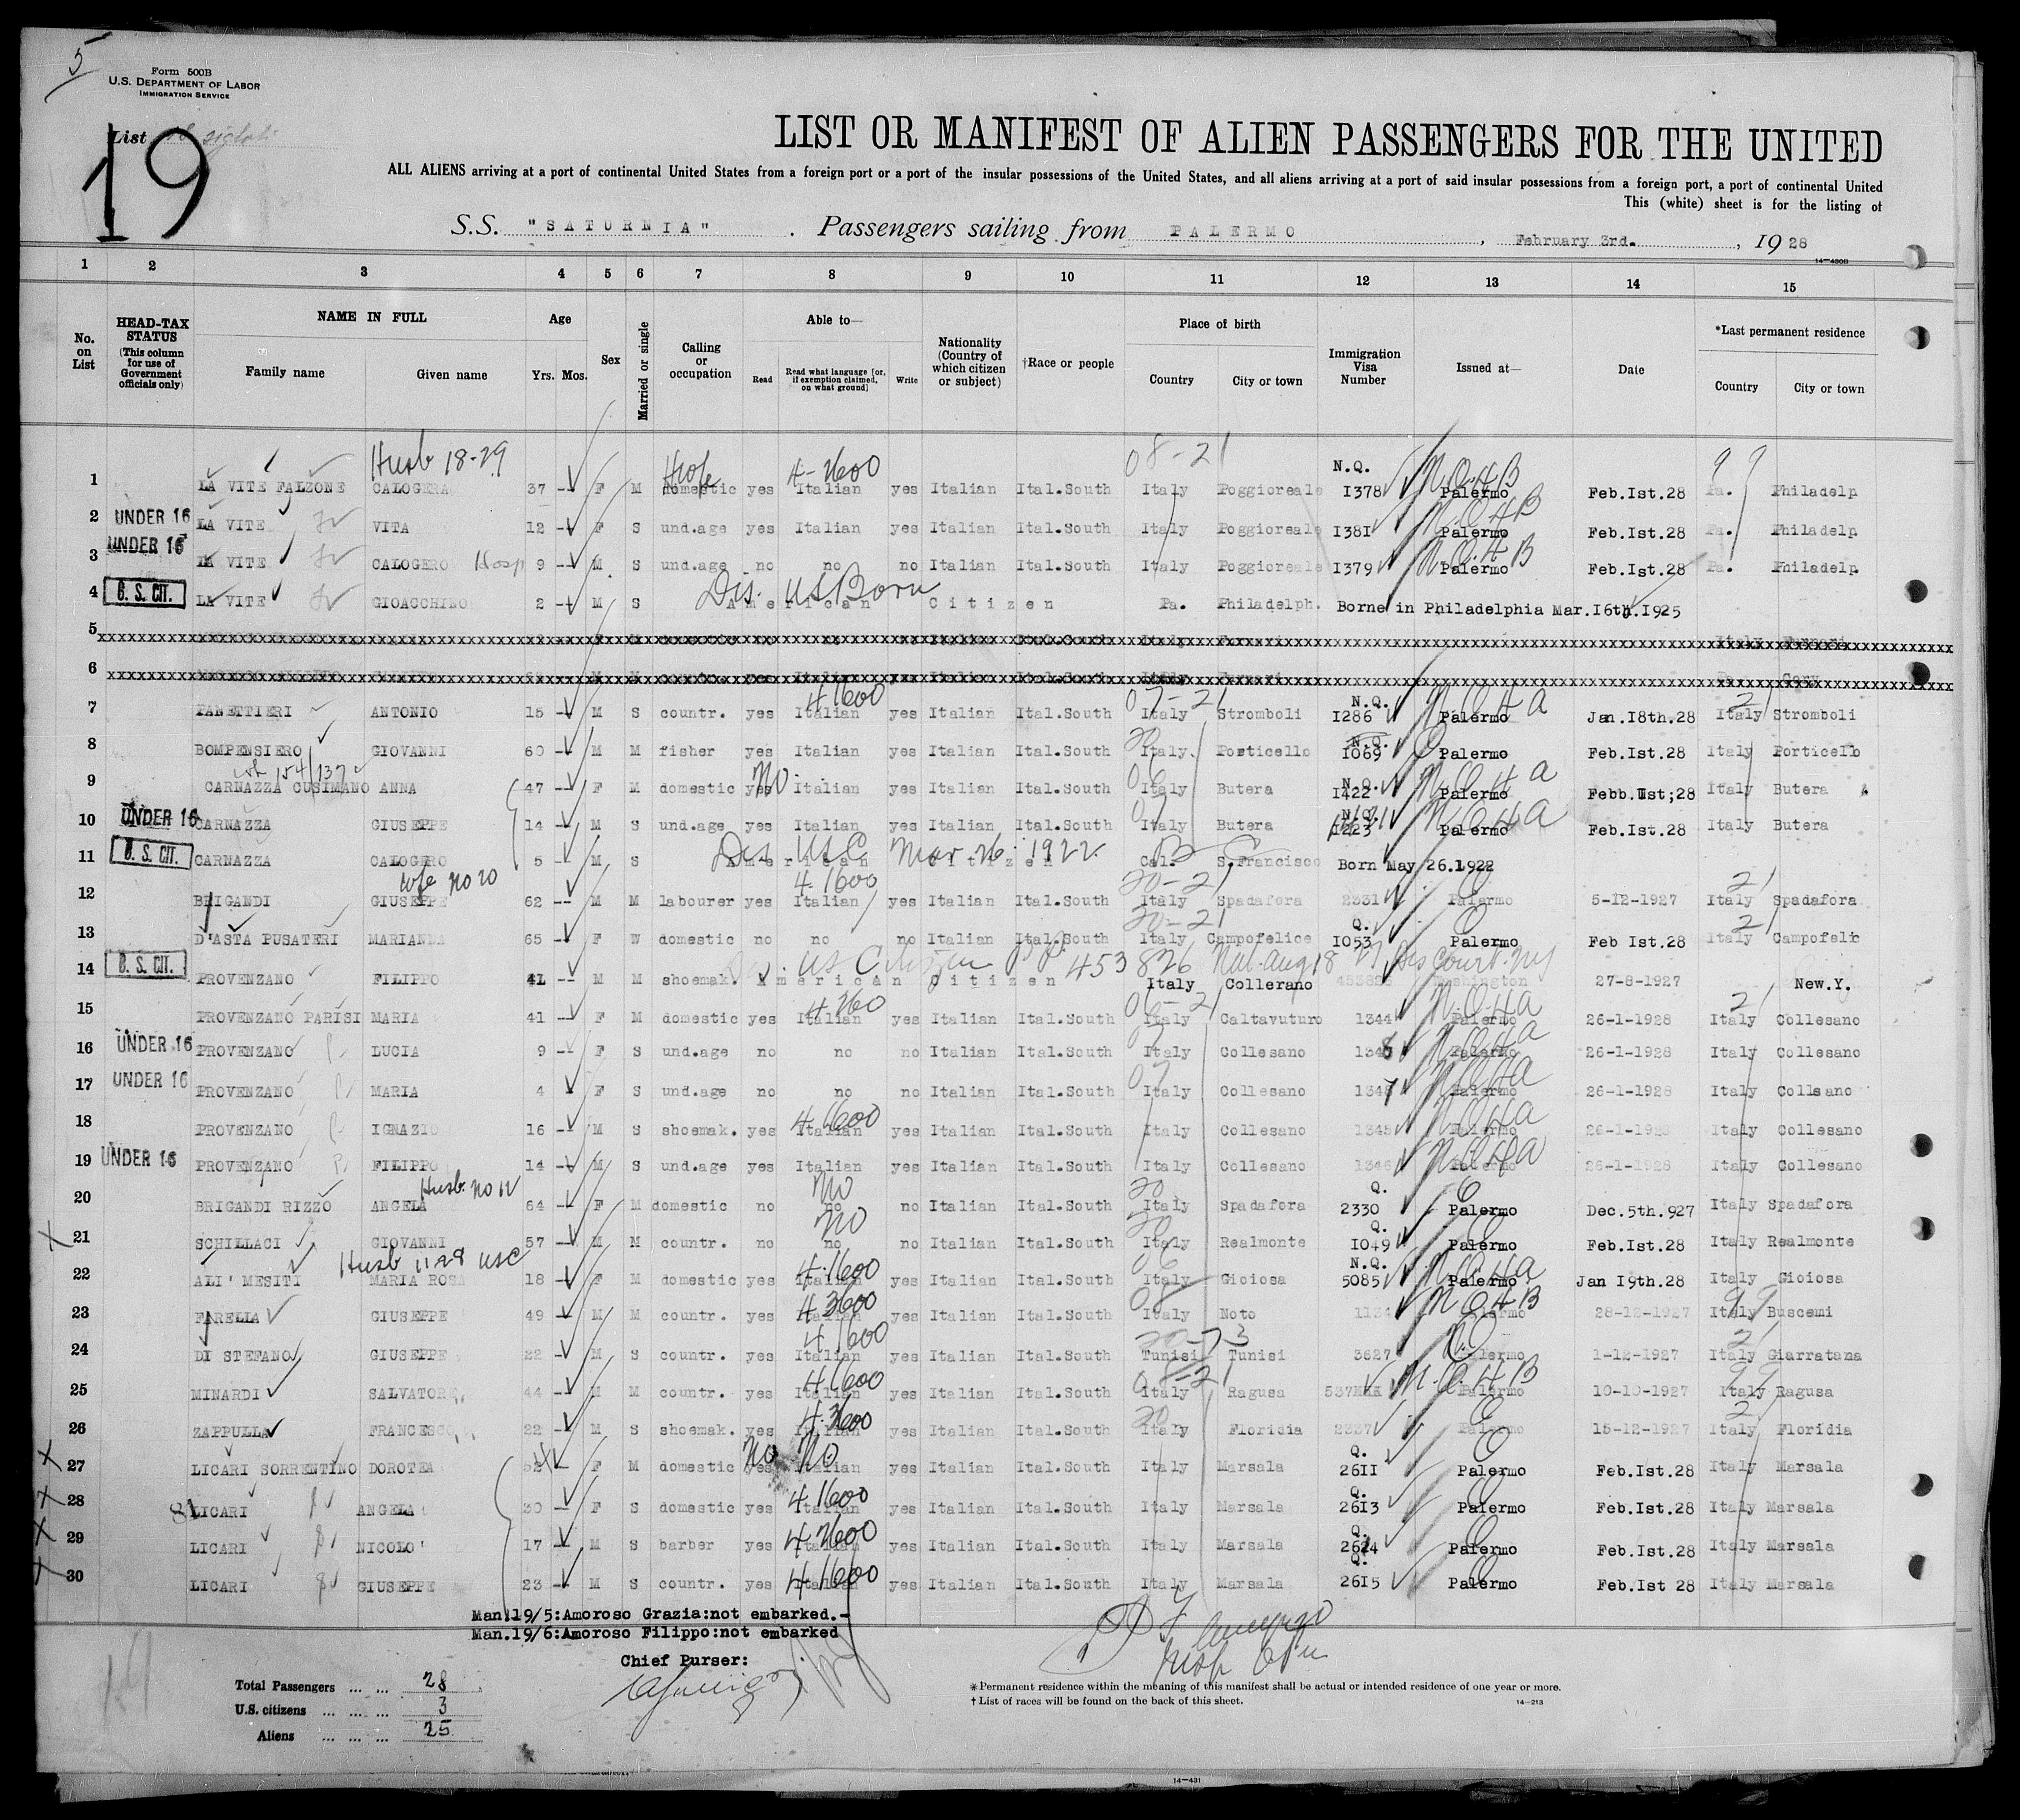 5
Form 500B
U.S. DEPARTMENT OF LABOR
IMMIGRATION SERVICE
List
19
LIST OR MANIFEST OF ALIEN PASSENGERS FOR THE UNITED
ALL ALIENS arriving at a port of continental United States from a foreign port or a port of the insular possessions of the United States, and all aliens arriving at a port of said insular possessions from a foreign port, a port of continental United
This (white) sheet is for the listing of
S.S. "SATURNIA" . Passengers sailing from PALERMO , February 3rd. , 19 28
14—430B
1 2 3 4 5 6 7 8 9 10 11 12 13 14 15
No. on List
HEAD-TAX STATUS (This column for use of Government officials only)
NAME IN FULL
Family name Given name
Age Yrs. Mos.
Sex
Married or single
Calling or occupation
Able to— Read Read what language [or, if exemption claimed, on what ground] Write
Nationality (Country of which citizen or subject)
†Race or people
Place of birth Country City or town
Immigration Visa Number
Issued at—
Date
*Last permanent residence Country City or town
Husb 18-29 4-2600 08-21 N.Q. 99
1 LA VITE FALZONE CALOGERA 37 -- F M domestic yes Italian yes Italian Ital.South Italy Poggioreale I378 Palermo Feb.Ist.28 Pa. Philadelp
2 UNDER 16 LA VITE VITA 12 -- F S und.age yes Italian yes Italian Ital.South Italy Poggioreale I38I Palermo Feb.Ist.28 Pa. Philadelp
3 UNDER 16 LA VITE CALOGERO Hosp 9 -- M S und.age no no no Italian Ital.South Italy Poggioreale I379 Palermo Feb.Ist.28 Pa. Philadelp
Dis. US Born
4 U. S. CIT. LA VITE GIOACCHINO 2 -- M S American Citizen Pa. Philadelph. Borne in Philadelphia Mar.I6th.I925
5
6
4 1600 07-21 N.Q. NO4a 21
7 PANETTIERI ANTONIO 15 -- M S countr. yes Italian yes Italian Ital.South Italy Stromboli I286 Palermo Jan.I8th.28 Italy Stromboli
8 BOMPENSIERO GIOVANNI 60 -- M M fisher yes Italian yes Italian Ital.South Italy. Porticello N.Q. I069 Palermo Feb.Ist.28 Italy Porticello
154/137 No
9 CARNAZZA CUSIMANO ANNA 47 -- F M domestic yes Italian yes Italian Ital.South Italy Butera N.Q. I422 Palermo Febb.Ist;28 Italy Butera
10 UNDER 16 CARNAZZA GIUSEPPE 14 -- M S und.age yes Italian yes Italian Ital.South Italy Butera I223 Palermo Feb.Ist.28 Italy Butera
Dis. USC Mar 26 1922
11 U. S. CIT. CARNAZZA CALOGERO 5 -- M S American Citizen Cal. S.Francisco Born May 26.1922
wfe no 20 4.1600 20-21 21
12 BRIGANDI GIUSEPPE 62 -- M M labourer yes Italian yes Italian Ital.South Italy Spadafora 2331 Palermo 5-I2-1927 Italy Spadafora
20-21 Q. 21
13 D'ASTA PUSATERI MARIANNA 65 -- F W domestic no no no Italian Ital.South Italy Campofelice I053 Palermo Feb Ist.28 Italy Campofelic
US Citizen 453826 Nat. Aug 18 27 Dis Court. NY
14 U. S. CIT. PROVENZANO FILIPPO 41 -- M M shoemak. American Citizen Italy Collerano Washington 27-8-1927 New.Y.
15 PROVENZANO PARISI MARIA 41 -- F M domestic yes Italian yes Italian Ital.South Italy Caltavuturo 1344 Palermo 26-1-1928 Italy Collesano
16 UNDER 16 PROVENZANO LUCIA 9 -- F S und.age no no no Italian Ital.South Italy Collesano 1348 Palermo 26-1-1928 Italy Collesano
17 UNDER 16 PROVENZANO MARIA 4 -- F S und.age no no no Italian Ital.South Italy Collesano 1347 Palermo 26-1-1928 Italy Collsano
4 1600
18 PROVENZANO IGNAZIO 16 -- M S shoemak. yes Italian yes Italian Ital.South Italy Collesano 1345 Palermo 26-1-1928 Italy Collesano
19 UNDER 16 PROVENZANO FILIPPO 14 -- M S und.age yes Italian yes Italian Ital.South Italy Collesano 1346 Palermo 26-1-1928 Italy Collesano
Husb. no 12 No Q.
20 BRIGANDI RIZZO ANGELA 64 -- F M domestic no no no Italian Ital.South Italy Spadafora 2330 Palermo Dec.5th.927 Italy Spadafora
No Q.
21 SCHILLACI GIOVANNI 57 -- M M countr. no no no Italian Ital.South Italy Realmonte I049 Palermo Feb.Ist.28 Italy Realmonte
Husb 11-28 USC 4.1600 N.Q.
22 ALI' MESITI MARIA ROSA 18 -- F M domestic yes Italian yes Italian Ital.South Italy Gioiosa 5085 Palermo Jan I9th.28 Italy Gioiosa
4 3600
23 FARELLA GIUSEPPE 49 -- M M countr. yes Italian yes Italian Ital.South Italy Noto Palermo 28-12-1927 Italy Buscemi
4 1600
24 DI STEFANO GIUSEPPE 22 -- M S countr. yes Italian yes Italian Ital.South Tunisi Tunisi 3627 Palermo 1-12-1927 Italy Giarratana
4 1600
25 MINARDI SALVATORE 44 -- M M countr. yes Italian yes Italian Ital.South Italy Ragusa Palermo 10-10-1927 Italy Ragusa
4.3600
26 ZAPPULLA FRANCESCO 22 -- M S shoemak. yes Italian yes Italian Ital.South Italy Floridia 2337 Palermo 15-12-1927 Italy Floridia
No No Q.
27 LICARI SORRENTINO DOROTEA 52 -- F M domestic yes Italian yes Italian Ital.South Italy Marsala 26II Palermo Feb.Ist.28 Italy Marsala
4 1600 Q.
28 LICARI ANGELA 30 -- F S domestic yes Italian yes Italian Ital.South Italy Marsala 26I3 Palermo Feb.Ist.28 Italy Marsala
4 2600 Q.
29 LICARI NICOLO' 17 -- M S barber yes Italian yes Italian Ital.South Italy Marsala 2624 Palermo Feb.Ist.28 Italy Marsala
4 1600 Q.
30 LICARI GIUSEPPE 23 -- M S countr. yes Italian yes Italian Ital.South Italy Marsala 26I5 Palermo Feb.Ist 28 Italy Marsala
Man.19/5:Amoroso Grazia:not embarked.-
Man.19/6:Amoroso Filippo:not embarked
Chief Purser:
Total Passengers ... ... 28
U.S. citizens ... ... ... 3
Aliens ... ... ... 25
* Permanent residence within the meaning of this manifest shall be actual or intended residence of one year or more.
† List of races will be found on the back of this sheet.
14—213
14—431